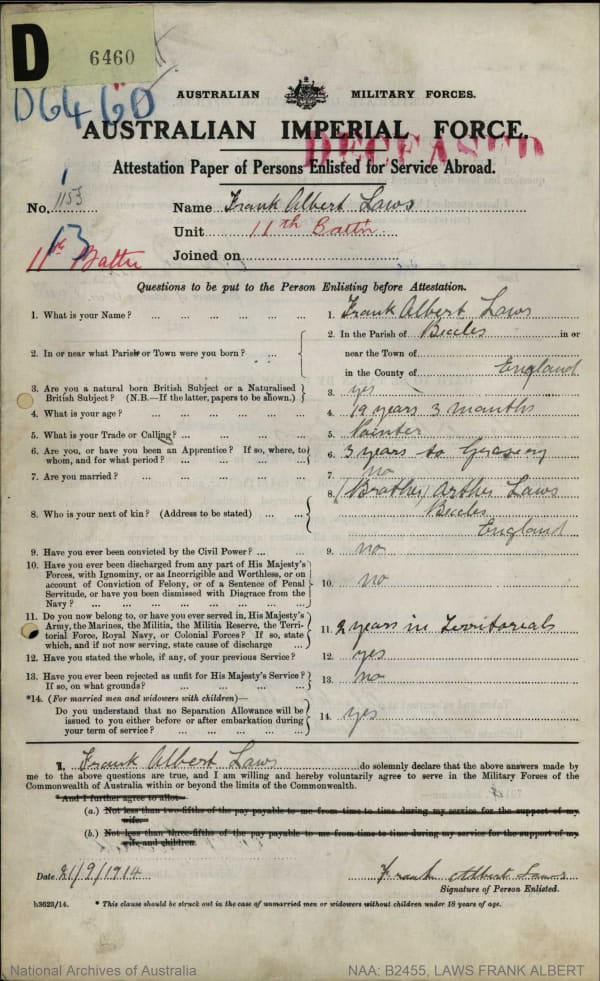 D 6460
D6460
AUSTRALIAN MILITARY FORCES.
AUSTRALIAN IMPERIAL FORCE.
DECEASED
Attestation Paper of Persons Enlisted for Service Abroad.
No. 1153
Name Frank Albert Laws
Unit 11th Battn
11th Battn
13
Joined on
Questions to be put to the Person Enlisting before Attestation.
1. What is your Name? ... ... ... ... ... 1. Frank Albert Laws
2. In or near what Parish or Town were you born? ... 2. In the Parish of Beccles in or
near the Town of
in the County of England
3. Are you a natural born British Subject or a Naturalised
British Subject? (N.B.—If the latter, papers to be shown.) 3. yes
4. What is your age? ... ... ... ... ... 4. 19 years 3 months
5. What is your Trade or Calling? ... ... ... ... 5. Painter
6. Are you, or have you been an Apprentice? If so, where, to
whom, and for what period? ... ... ... ... 6. 3 years to
7. Are you married? ... ... ... ... ... 7. no
8. Who is your next of kin? (Address to be stated) ... ... 8. (Brother) Arther Laws
Beccles
England
9. Have you ever been convicted by the Civil Power? ... ... 9. no
10. Have you ever been discharged from any part of His Majesty's
Forces, with Ignominy, or as Incorrigible and Worthless, or on
account of Conviction of Felony, or of a Sentence of Penal
Servitude, or have you been dismissed with Disgrace from the
Navy? ... ... ... ... ... ... 10. no
11. Do you now belong to, or have you ever served in, His Majesty's
Army, the Marines, the Militia, the Militia Reserve, the Terri-
torial Force, Royal Navy, or Colonial Forces? If so, state
which, and if not now serving, state cause of discharge ... 11. 2 years in Territorials
12. Have you stated the whole, if any, of your previous Service? 12. yes
13. Have you ever been rejected as unfit for His Majesty's Service?
If so, on what grounds? ... ... ... ... 13. no
*14. (For married men and widowers with children)—
Do you understand that no Separation Allowance will be
issued to you either before or after embarkation during
your term of service? ... ... ... ... ... 14. yes
I, Frank Albert Laws do solemnly declare that the above answers made by
me to the above questions are true, and I am willing and hereby voluntarily agree to serve in the Military Forces of the
Commonwealth of Australia within or beyond the limits of the Commonwealth.
*And I further agree to allot—
(a.) Not less than two-fifths of the pay payable to me from time to time during my service for the support of my
wife.
(b.) Not less than three-fifths of the pay payable to me from time to time during my service for the support of my
wife and children.
Date 21/9/1914 Frank Albert Laws
Signature of Person Enlisted.
h3623/14. * This clause should be struck out in the case of unmarried men or widowers without children under 18 years of age.
National Archives of Australia NAA: B2455, LAWS FRANK ALBERT